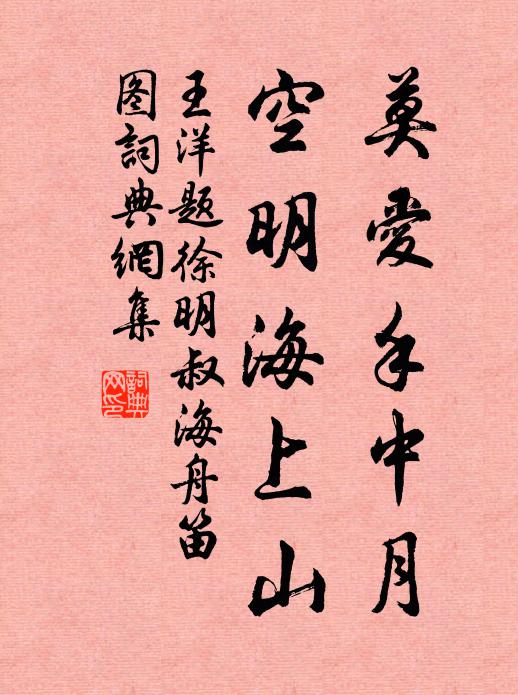 莫愛手中月
空明海上山
王洋题徐明叔海舟笛
图詞典網集
詞典网印